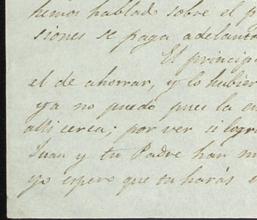 hemos hablado sobre el p
siones se paga adelant
El princip
el de ahorrar, y lo hubier
ya no puedo pues la
alli cerca; por ver si logr
Juan y tu Padre han
yo espero que tu harás